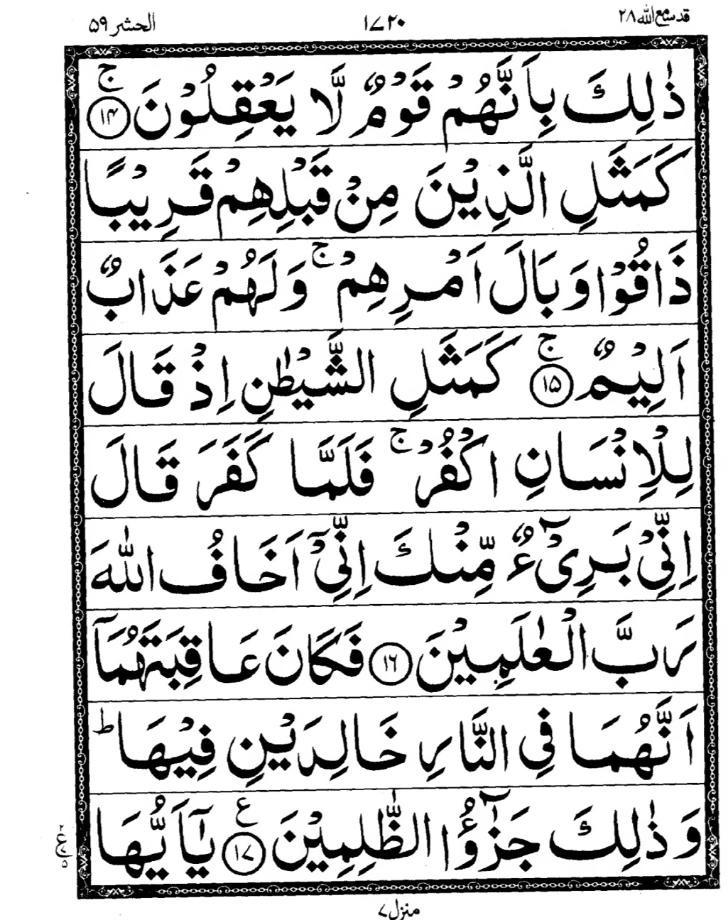 قد سمع الله ۲۸
۱۷۲۰
الحشر ۵۹
ذٰلِكَ بِاَنَّهُمْ قَوْمٌ لَّا يَعْقِلُوْنَ ۚ ۱۴
كَمَثَلِ الَّذِيْنَ مِنْ قَبْلِهِمْ قَرِيْبًا
ذَاقُوْا وَبَالَ اَمْرِهِمْ ۚ وَلَهُمْ عَذَابٌ
اَلِيْمٌ ۚ ۱۵ كَمَثَلِ الشَّيْطٰنِ اِذْ قَالَ
لِلْاِنْسَانِ اكْفُرْ ۚ فَلَمَّا كَفَرَ قَالَ
اِنِّيْ بَرِیْٓءٌ مِّنْكَ اِنِّيْٓ اَخَافُ اللّٰهَ
رَبَّ الْعٰلَمِيْنَ ۱۶ فَكَانَ عَاقِبَتَهُمَآ
اَنَّهُمَا فِي النَّارِ خَالِدَيْنِ فِيْهَا ؕ
وَذٰلِكَ جَزٰٓؤُا الظّٰلِمِيْنَ ع ۱۷ يٰٓاَيُّهَا
منزل ۷